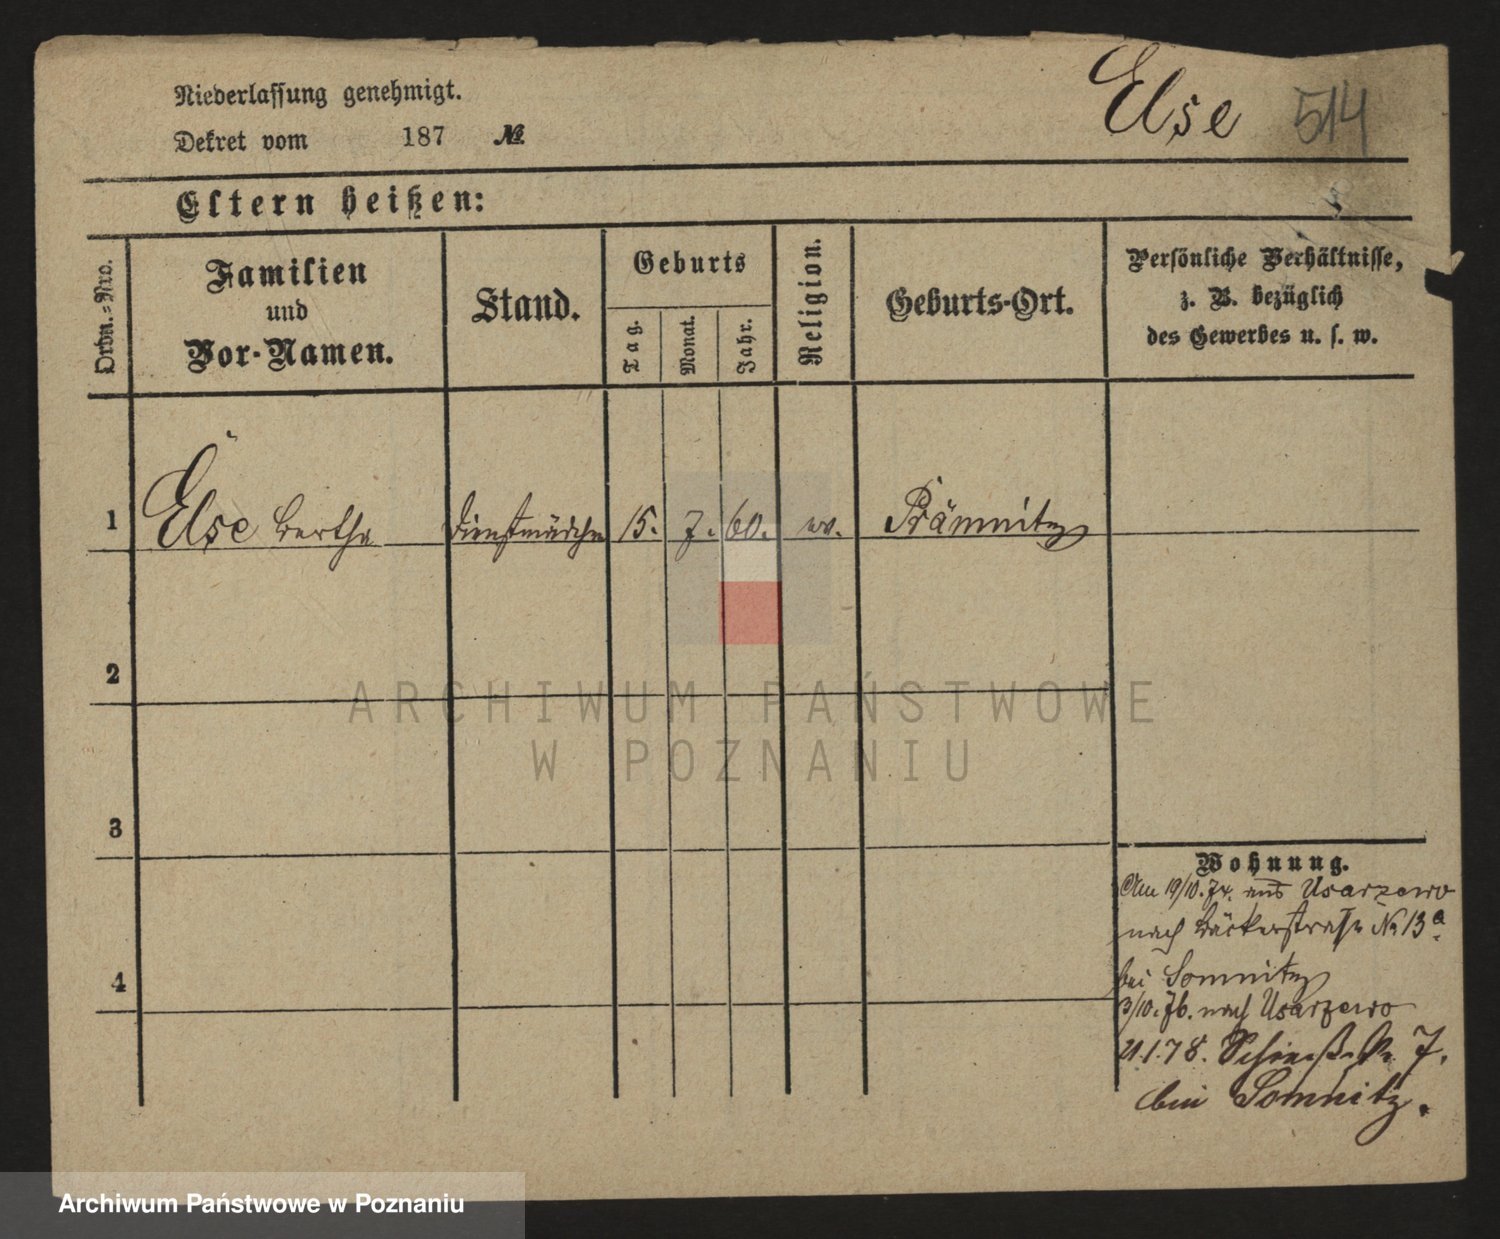 Niederlassung genehmigt.
Dekret vom 187 №
Else 514
Eltern heißen:
Ordn.-Nro.
Familien
und
Vor-Namen.
Stand.
Geburts
Tag.
Monat.
Jahr.
Religion.
Geburts-Ort.
Persönliche Verhältnisse,
z. B. bezüglich
des Gewerbes u. s. w.
1 Else Bertha Dienstmädchen 15. 7. 60. ev. Prämnitz
2
3
4
Wohnung.
Am 19/10. 74. aus Usarzewo
nach Bäckerstraße No 13a
bei Somnitz
3/10. 76. nach Usarzewo
21.1.78. 7.
bei Somnitz.
ARCHIWUM PAŃSTWOWE
W POZNANIU
Archiwum Państwowe w Poznaniu